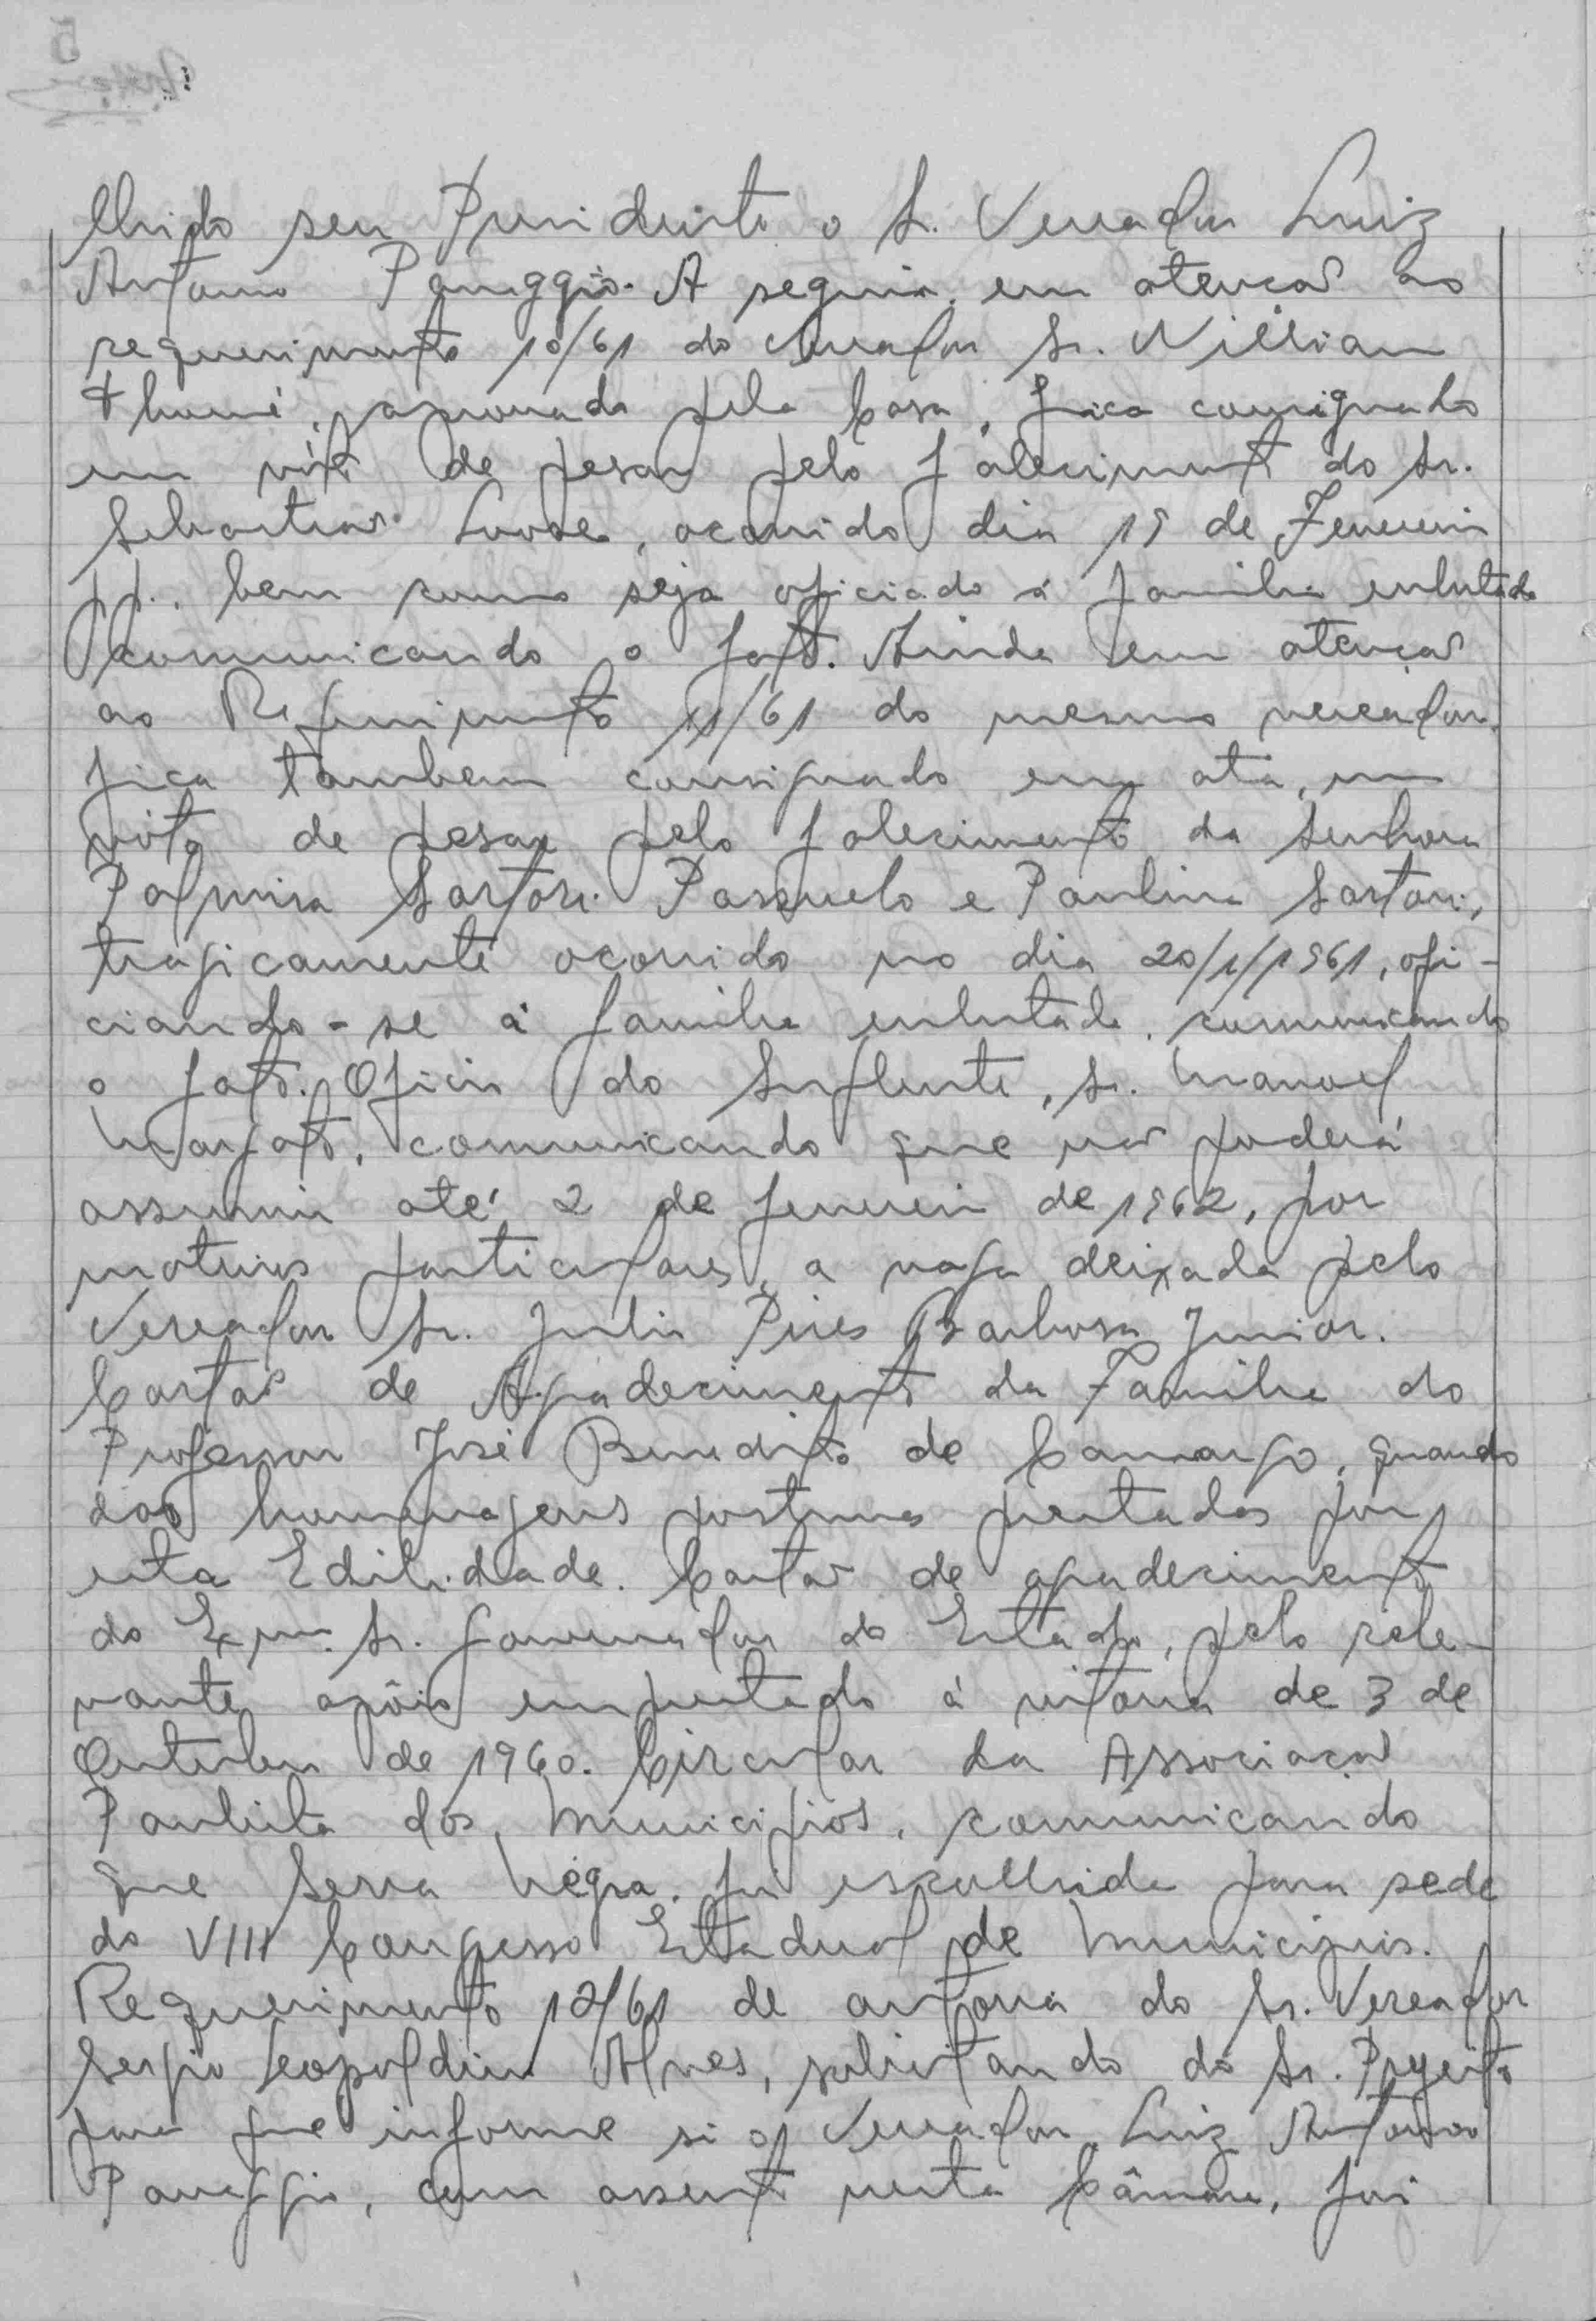 lhido seu Presidente o Sr. Vereador Luiz
Antonio Panaggio. A seguir, em atenção ao
requerimento 10/61 do Vereador Sr. Willian
Thomé, aprovado pela Casa, fica consignado
um vóto de pesar pelo falecimento do Sr.
Sebastião Loose, ocorrido dia 19 de Fevereiro
pp., bem como seja oficiado á familia enlutada
comunicando o fato. Ainda em atenção
ao Requerimento 11/61 do mesmo vereador,
fica tambem consignado em ata, um
vóto de pesar pelo falecimento da Senhora
Palmira Sartori Pazzuelo e Paulina Sartori,
tragicamente ocorrido no dia 20/1/1961, ofi-
ciando-se á familia enlutada, comunicando
o fato. Oficio do Suplente, Sr. Manoel
Margato, comunicando que não poderá
assumir até 2 de fevereiro de 1962, por
motivos particulares, a vaga deixada pelo
Vereador Sr. Julio Pires Barbosa Junior.
Cartão de Agradecimento da Familia do
Professor José Benedito de Camargo, quando
das homenagens postumas prestadas por
esta Edilidade. Cartão de agradecimento
do Exmo. Sr. Governador do Estado, pelo rele-
vante apôio emprestado á vitoria de 3 de
Outubro de 1960. Circular da Associação
Paulista dos Municipios, comunicando
que Serra Negra, foi escolhida para sede
do VIII Congresso Estadual de Municipios.
Requerimento 12/61 de autoria do Sr. Vereador
Sergio Leopoldino Alves, solicitando do Sr. Prefeito
para que informe si o Vereador Luiz Antonio
Panaggio, com assento nesta Câmara, foi